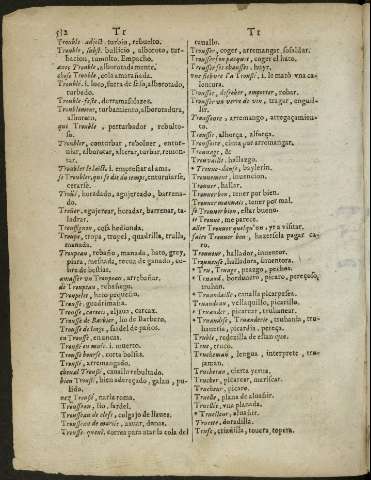 512 T I T I
Trouble, adject. turbio, rebuelto.
Trouble, subst. bullicio, alboroto, tur-
bacion, tumulto. Empacho.
avec Trouble, alborotadamente.
Trouble. i. loco, fuera de si,
turbado.
Trouble-feste, derramasolazes.
Troublement, turbamiento, alborotadura,
alboroto.
qui Trouble, perturbador, rebulto-
so.
Troubler, conturbar, rebolver, entur-
viar, alborotar, alterar, turbar, remon-
tar.
cerarse.
Troüé, horadado, agujereado, barrena-
do.
Troüer, agujerear, horadar, barrenar, ta-
ladrar.
cosa hedionda.
Troupe, tropa, tropel, quadrilla, trulla,
manada.
Troupeau, rebaño, manada, hato, grey,
piara, mestrada, recua de ganado,
de bestias.
amasser un Troupeau, arrebañar.
de Troupeau, rebañego.
Troupelet, hato pequeño.
Trousse, carcax, aljava, carcax.
Trousse de Barbier,
Trousse de linge, faldel de paños.
en Trousse, en ancas.
i. muerto.
Trousse bourse, corta bolsas.
Troussé, arremangado.
cheval Troussé, cavallo rebultado.
bien Troussé, bien adereçado, galan, pu-
lido.
nez Troussé, nariz roma.
Trousseau, lio, fardel.
Trousseau de clefs, colgajo de llaves.
Trousseau de mariée, axuar, donas.
Trousse-queuë, correa para atar la cola del
cavallo.
Trousser, coger, arremangar, sofaldar.
Trousser son pacquet, coger el hato.
Trousser ses chausses, huyr.
une fiebvre l'a Troussé, i. le mató una ca-
lentura.
Trousser, desrober, emporter, robar.
Trousser un verre de vin, tragar, engul-
lir.
Troussure, arremango, arregaçamien-
to.
Trousse, alhorça, alforça.
Troussoire, cinta por arremangar.
Trouvage, &
Trouvaille, hallazgo.
Trouvement, invencion.
Trouver, hallar.
Trouver bon, tener por bien.
Trouver mauvais, tener por mal.
se Trouver bien, estar bueno.
se Trouve, me parece.
aller Trouver quelqu'un, yr a visitar.
faire Trouver bon, hazersela pagar ca-
ro.
Trouveur, hallador, inventor.
Trouveuse, halladora, inventora.
* Tru, Truage, peazgo, pechos.
* Truand, bordonero, picaro, pereçoso,
truhan.
* Truandaille, canalla picaresca.
* Truandeau, vellaquillo, picarillo.
* Truander, picarear, truhanear.
* Truandise, Truanderie, truhania, tru-
haneria, picardia, pereça.
Truble, redezilla de estanque.
Truc, truco.
Trucheman, lengua, interprete, tru-
jaman.
Trucheran, cierta yerua.
Trucher, picarear, moriscar.
Trucheur, picaro.
Truelle, plana de alvañir.
Truellée, una plana.
* Truelleur, alvañir.
Truette, doradilla.
Truffe, criadilla, touera, topera.